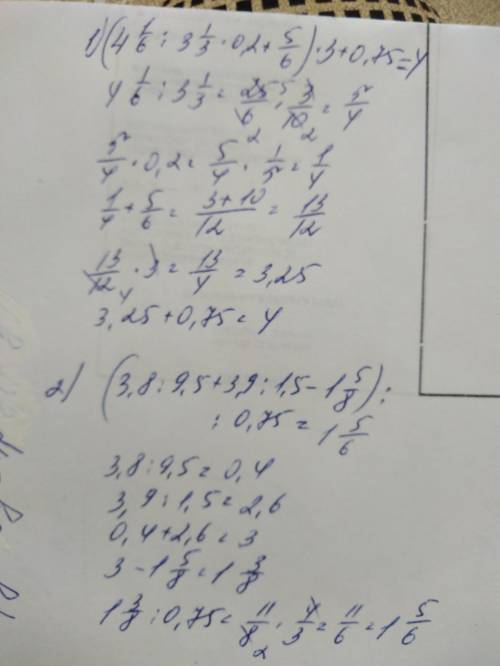 1) (4 1/6 : 3 1/3 · 0,2 + 5/6) · 3 + 0,75 = 4
4 1/6 : 3 1/3 = 25/6 · 3/10 = 5/4
5/4 · 0,2 = 5/4 · 1/5 = 1/4
1/4 + 5/6 = (3+10)/12 = 13/12
13/12 · 3 = 13/4 = 3,25
3,25 + 0,75 = 4
2) (3,8 : 9,5 + 3,9 : 1,5 - 1 5/8) :
: 0,75 = 1 5/6
3,8 : 9,5 = 0,4
3,9 : 1,5 = 2,6
0,4 + 2,6 = 3
3 - 1 5/8 = 1 3/8
1 3/8 : 0,75 = 11/8 · 4/3 = 11/6 = 1 5/6